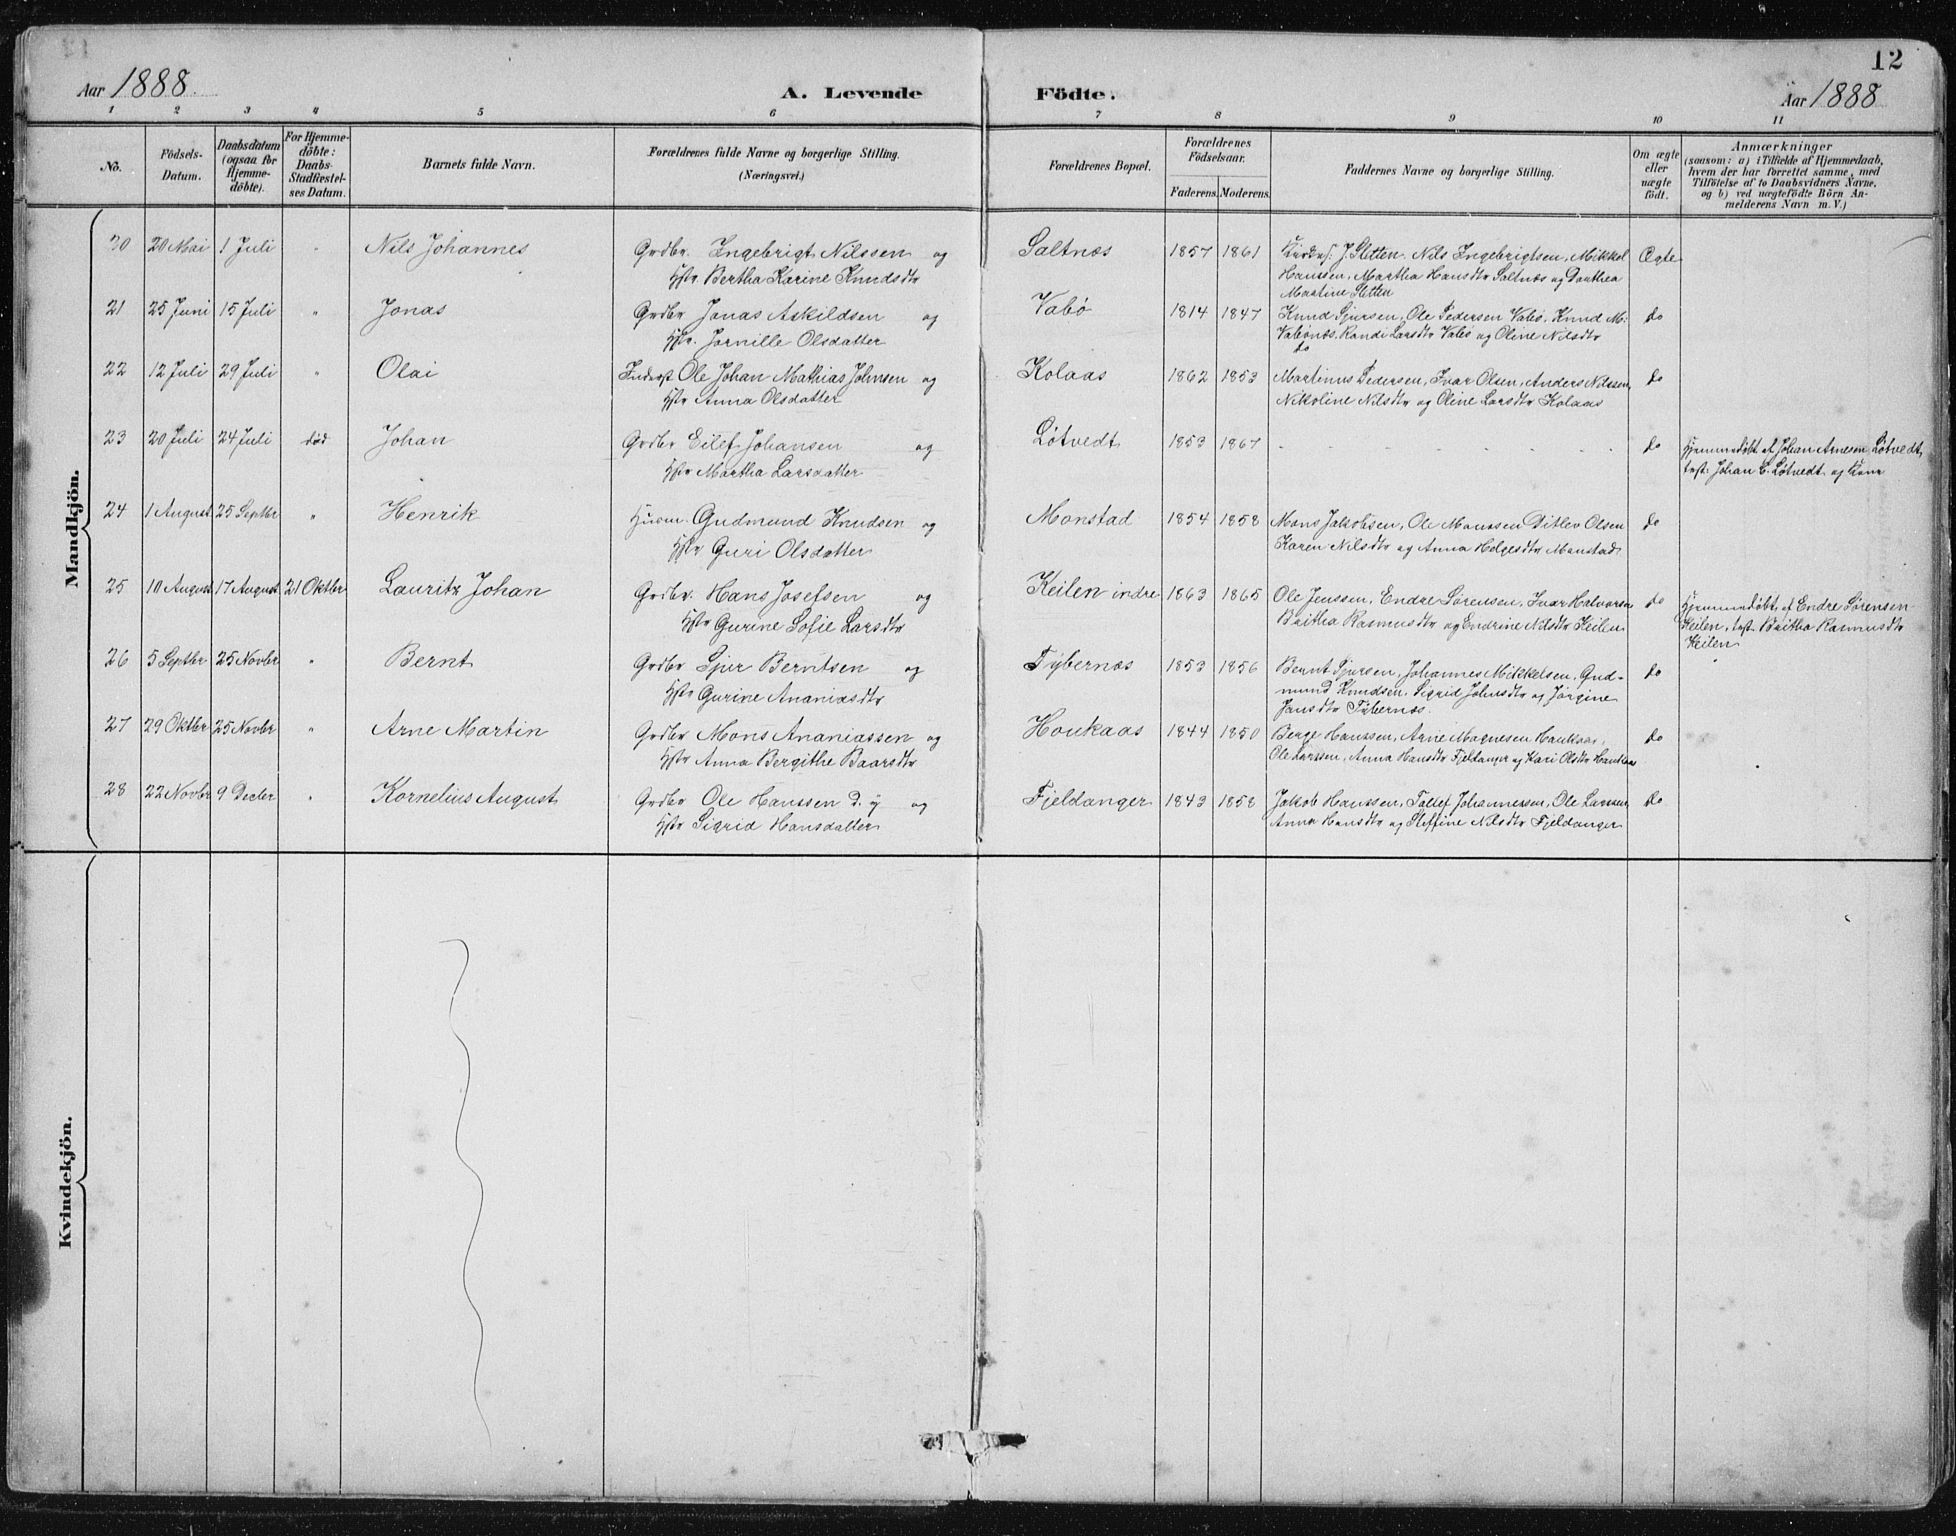 12
Aar 1888. A. Levende Födte. Aar 1888
1 2 3 4 5 6 7 8 9 10 11
No. Födsels-Datum. Daabsdatum (ogsaa for Hjemmedöbte). For Hjemmedöbte: Daabs-Stadfæstelses Datum. Barnets fulde Navn. Forældrenes fulde Navne og borgerlige Stilling. (Næringsvei.) Forældrenes Bopæl. Forældrenes Födselsaar. Faderens. Moderens. Faddernes Navne og borgerlige Stilling. Om ægte eller uægte födt. Anmærkninger (saasom: a) i Tilfælde af Hjemmedaab, hvem der har forrettet samme, med Tilföielse af to Daabsvidners Navne, og b) ved uægtefödte Börn Anmelderens Navn m. V.)
Mandkjön.
20 20 Mai 1 Juli " Nils Johannes Grdbr. Ingebrigt Nilssen og Saltnæs 1857 1861 J. Sletten. Nils Ingebrigtsen, Mikkel Ægte
Hstr Bertha Karine Knudsdtr Hanssen, Martha Hansdtr Saltnæs og Dorthea
Martine Sletten
21 25 Juni 15 Juli " Jonas Grdbr Jonas Askildsen og Vabø 1814 1847 Knud Sjursen, Ole Pedersen Vabø, Knud M: do
Hstr. Jørnille Olsdatter Vabønæs, Randi Larsdtr Vabø og Oline Nilsdtr
do
22 12 Juli 29 Juli " Olai Inderst Ole Johan Mathias Johnsen og Kolaas 1862 1853 Martinus Pedersen, Ivar Olsen, Anders Nilssen, do
Hstr Anna Olsdatter Nikoline Nilsdtr og Oline Larsdtr Kolaas
23 20 Juli 24 Juli død Johan Grdbr Eilef Johansen og Løtvedt 1853 1867 - - - - - do Hjemmedøbt af Johan Arnesen Løtvedt,
Hstr Martha Larsdatter test: Johan C. Løtvedt og Kone
24 1 August 25 Septbr " Henrik Husm. Gudmund Knudsen og Monstad 1854 1858 Mons Jakobsen, Ole Monssen Ditlev Olsen do
Hstr Guri Olsdatter Karen Nilsdtr og Anna Helgesdtr Monstad
25 10 August 17 August 21 Oktbr Lauritz Johan Grdbr. Hans Josefsen og Keilen indre 1863 1865 Ole Jenssen, Endre Sørensen, Ivar Halvorsen do Hjemmedøbt af Endre Sørensen
Hstr Gurine Sofie Larsdtr Britha Rasmusdtr og Endrine Nilsdtr Keilen Keilen, test. Britha Rasmusdtr
Keilen
26 5 Septbr 25 Novbr " Bernt Grdbr Sjur Berntsen og Tybernæs 1853 1856 Bernt Sjursen, Johannes Mikkelsen, Gud- do
Hstr Gurine Ananiasdtr mund Knudsen. Sigrid Johnsdtr og Jørgine
Jansdtr Tybernæs.
27 29 Oktbr 25 Novbr " Arne Martin Grdbr Mons Ananiassen og Houkaas 1844 1850 Berge Hanssen, Arne Magnesen Haukaas, do
Hstr Anna Bergithe Baarsdtr Ole Larssen, Anna Hansdtr Fjeldanger og Kari Olsdtr Haukaas
28 22 Novbr 9 Decbr " Kornelius August Grdbr Ole Hanssen d. y og Fjeldanger 1843 1858 Jakob Hanssen, Tollef Johannessen, Ole Larssen, do
Hstr Sigrid Hansdatter Anna Hansdtr og Steffine Nilsdtr Fjeldanger
Kvindekjön.